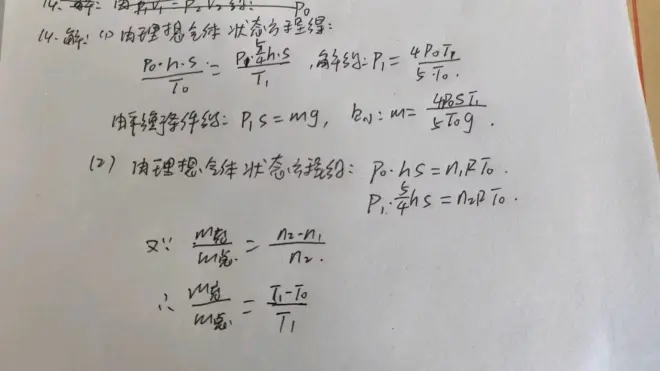 14. 解: 由 P₁V₁ = P₂V₂ 得: P₀
14. 解: (1) 由理想气体状态方程得:
P₀·h·s/T₀ = P₁·5/4 h·s/T₁ , 解得: P₁ = 4P₀T₁/5T₀.
由平衡条件得: P₁s = mg, 则: m = 4P₀ST₁/5T₀g.
(2) 由理想气体状态方程得: P₀·hs = n₁RT₀.
P₁·5/4 hs = n₂RT₀.
又∵ m充/m总 = n₂-n₁/n₂.
∴ m充/m总 = T₁-T₀/T₁